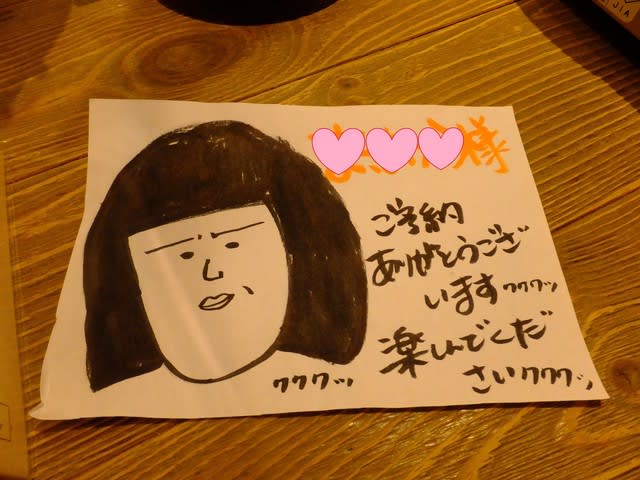 様
ご予約
ありがとうござ
いますワワワッ
楽しんでくだ
さいワワワッ
ワワワッ